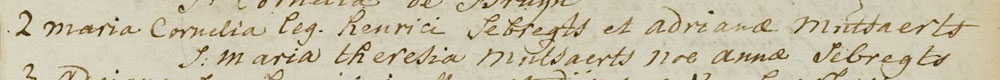 2 maria Cornelia leg. henrici Sebregts et adrianæ Mutsaerts
S: maria theresia Mutsaerts noe annæ Sebregts